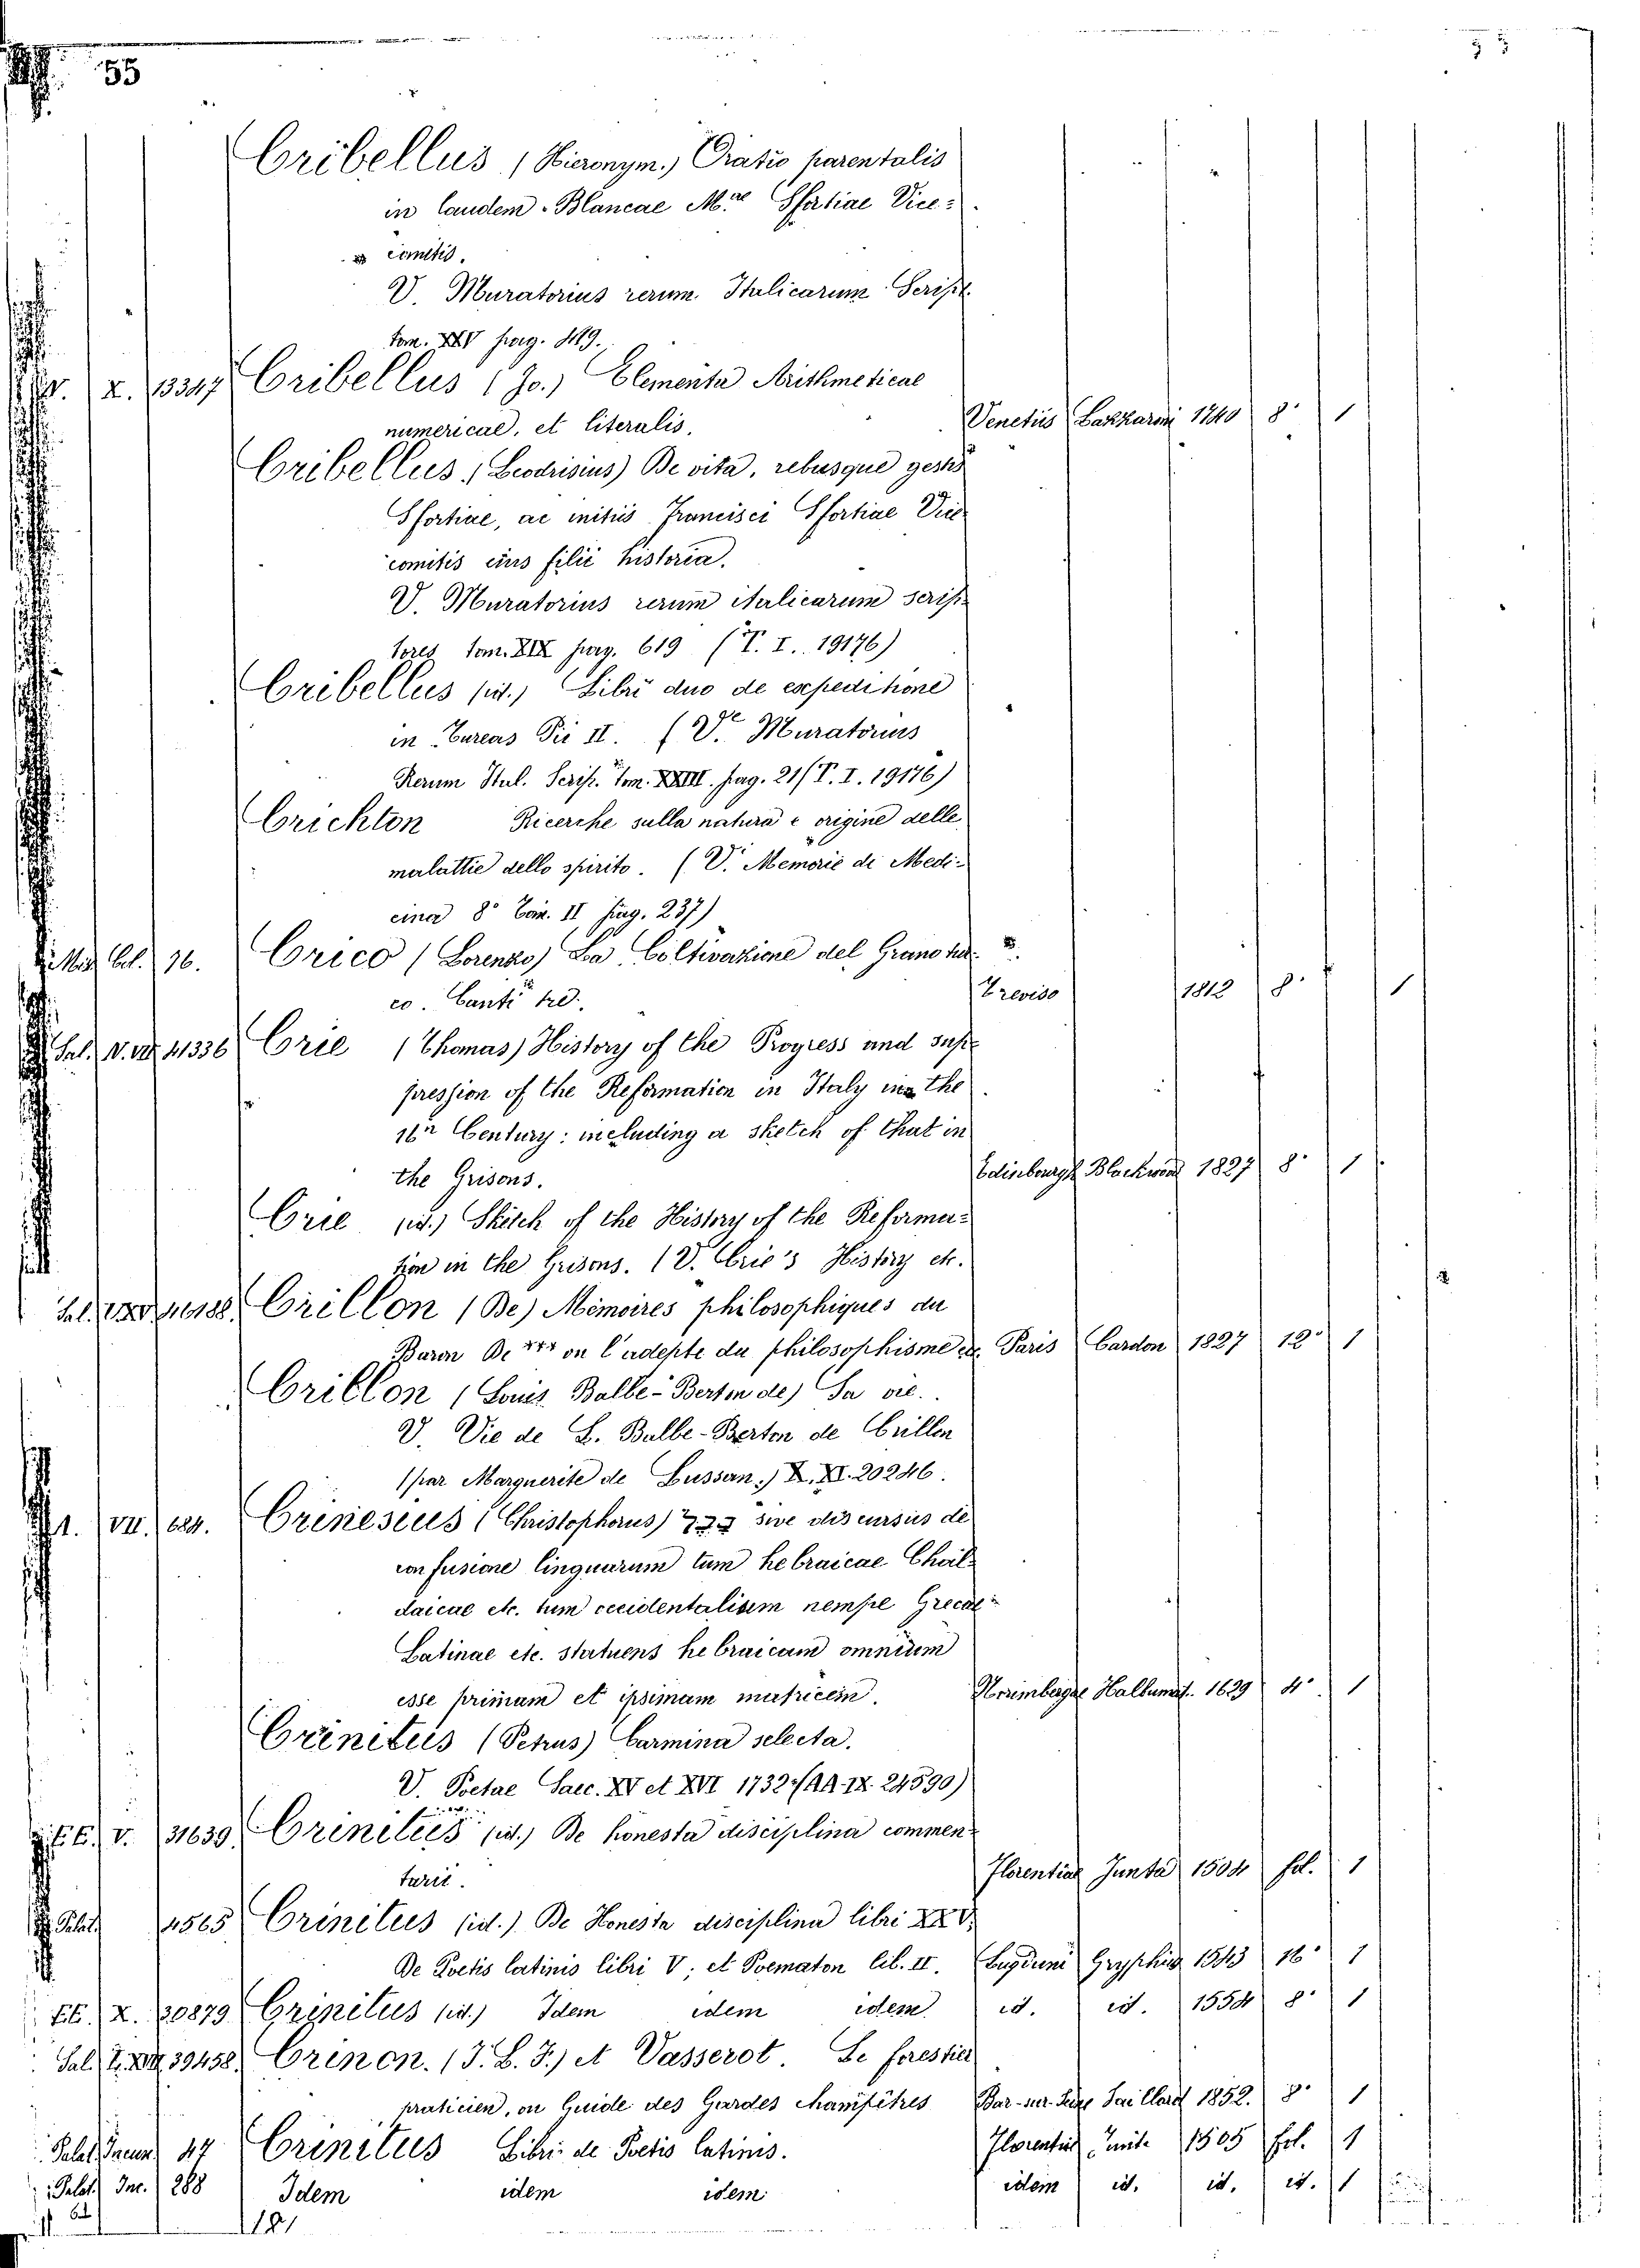 55
Cribellus (Hieronym.) Oratio parentalis
in laudem Blancae M.ae Sfortiae Vice=
comitis.
V. Muratorius rerum Italicarum Script.
tom. XXV pag. 419.
X. 13347 Cribellus (Jo.) Elementa Arithmeticae
numericae, et literalis. Venetiis Lazzarini 1740 8° 1
Cribellus (Leodrisius) De vita, rebusque gestis
Sfortiae, ac initiis Francisci Sfortiae Vice
comitis eius filii historia.
V. Muratorius rerum italicarum scrip
tores tom. XIX pag. 619 (T. I. 19176)
Cribellus (id.) Libri duo de expeditione
in Turcas Pii II. (V. Muratorius
Rerum Ital. Scrip. tom. XXIII. pag. 21 (T. I. 19176)
Crichton Ricerche sulla natura e origine delle
malattie dello spirito. (V. Memorie di Medi-
cina 8° Tom. II pag. 237)
76. Crico (Lorenzo) La Coltivazione del Grano tur
co. Canti tre. Treviso 1812 8° 1
Sal. 41336 Crie (Thomas) History of the Progress and sup
pression of the Reformation in Italy in the
16th Century: including a sketch of that in
the Grisons. Edinburgh Blackwood 1827 8° 1
Crie (id.) Sketch of the History of the Reforma=
tion in the Grisons. (V. Crie's History etc.
Sal. 46188. Crillon (De) Mémoires philosophiques du
Baron De *** ou l'adepte du philosophisme etc. Paris Cardon 1827 12° 1
Crillon (Louis Balbe-Berton de) Sa vie.
V. Vie de L. Balbe-Berton de Crillon
(par Marguerite de Lussan.) X. XI. 20246.
VII. 684. Crinesius (Christophorus) בבל sive discursus de
confusione linguarum tum hebraicae Chal
daicae etc. tum occidentalium nempe Grecae
Latinae etc. statuens hebraicam omnium
esse primam et ipsimam matricem. Norimbergae Halbumat. 1629 4° 1
Crinitus (Petrus) Carmina selecta.
V. Poetae Saec. XV et XVI 1732 (AA. IX. 24590)
E. V. 31639 Crinitus (id.) De honesta disciplina commen
tarii. Florentiae Junta 1504 fol. 1
Palat. 4565 Crinitus (id.) De Honesta disciplina libri XXV,
De Poetis latinis libri V, et Poematon lib. II. Lugduni Gryphius 1543 16° 1
EE. X. 30879 Crinitus (id.) Idem idem idem id. id. 1554 8° 1
Sal. 39458. Crinon. (J. L. J.) et Vasserot. Le forestier
praticien, ou Guide des Gardes champêtres Bar-sur-Seine Saillard 1852. 8° 1
Palat. Incun. 47 Crinitus Libri de Poetis latinis. Florentiae Junta 1505 fol. 1
Palat. Inc. 288 Idem idem idem idem id. id. id. 1
62
121